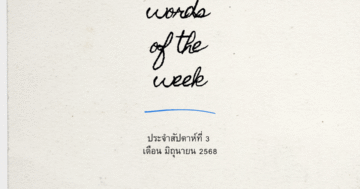 words
of the
week
ประจำสัปดาห์ที่ 3
เดือน มิถุนายน 2568